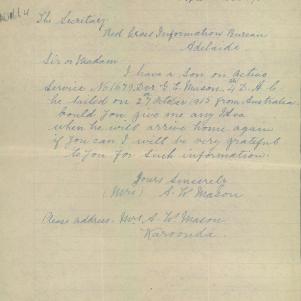 The Secretary
Red Cross Information Bureau
Adelaide
Sir or Madam
I have a Son on Active
Service No 1679 Dvr G. L. Mason. 4th D. A. C
he sailed on 27 October 1915 from Australia
Could you give me any Idea
when he will arrive home again
if you can I will be very grateful
to you For Such information.
Yours Sincerely
(Mrs) A. W. Mason
Please address. Mrs A. W. Mason.
Karoonda.